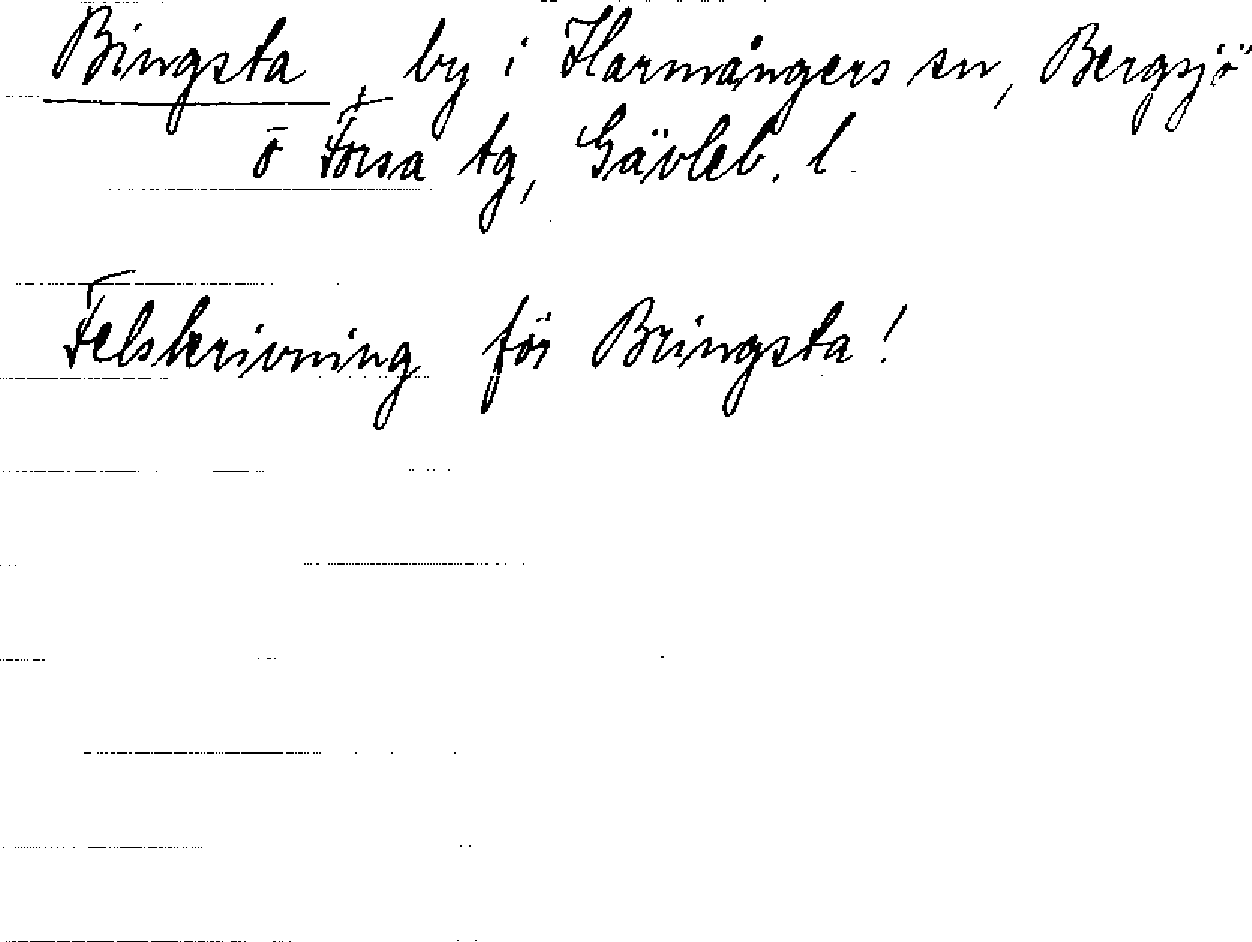 Bingsta, by i Harmångers sn, Bergsjö
o Forsa tg, Gävleb. l
Felskrivning för Bringsta!